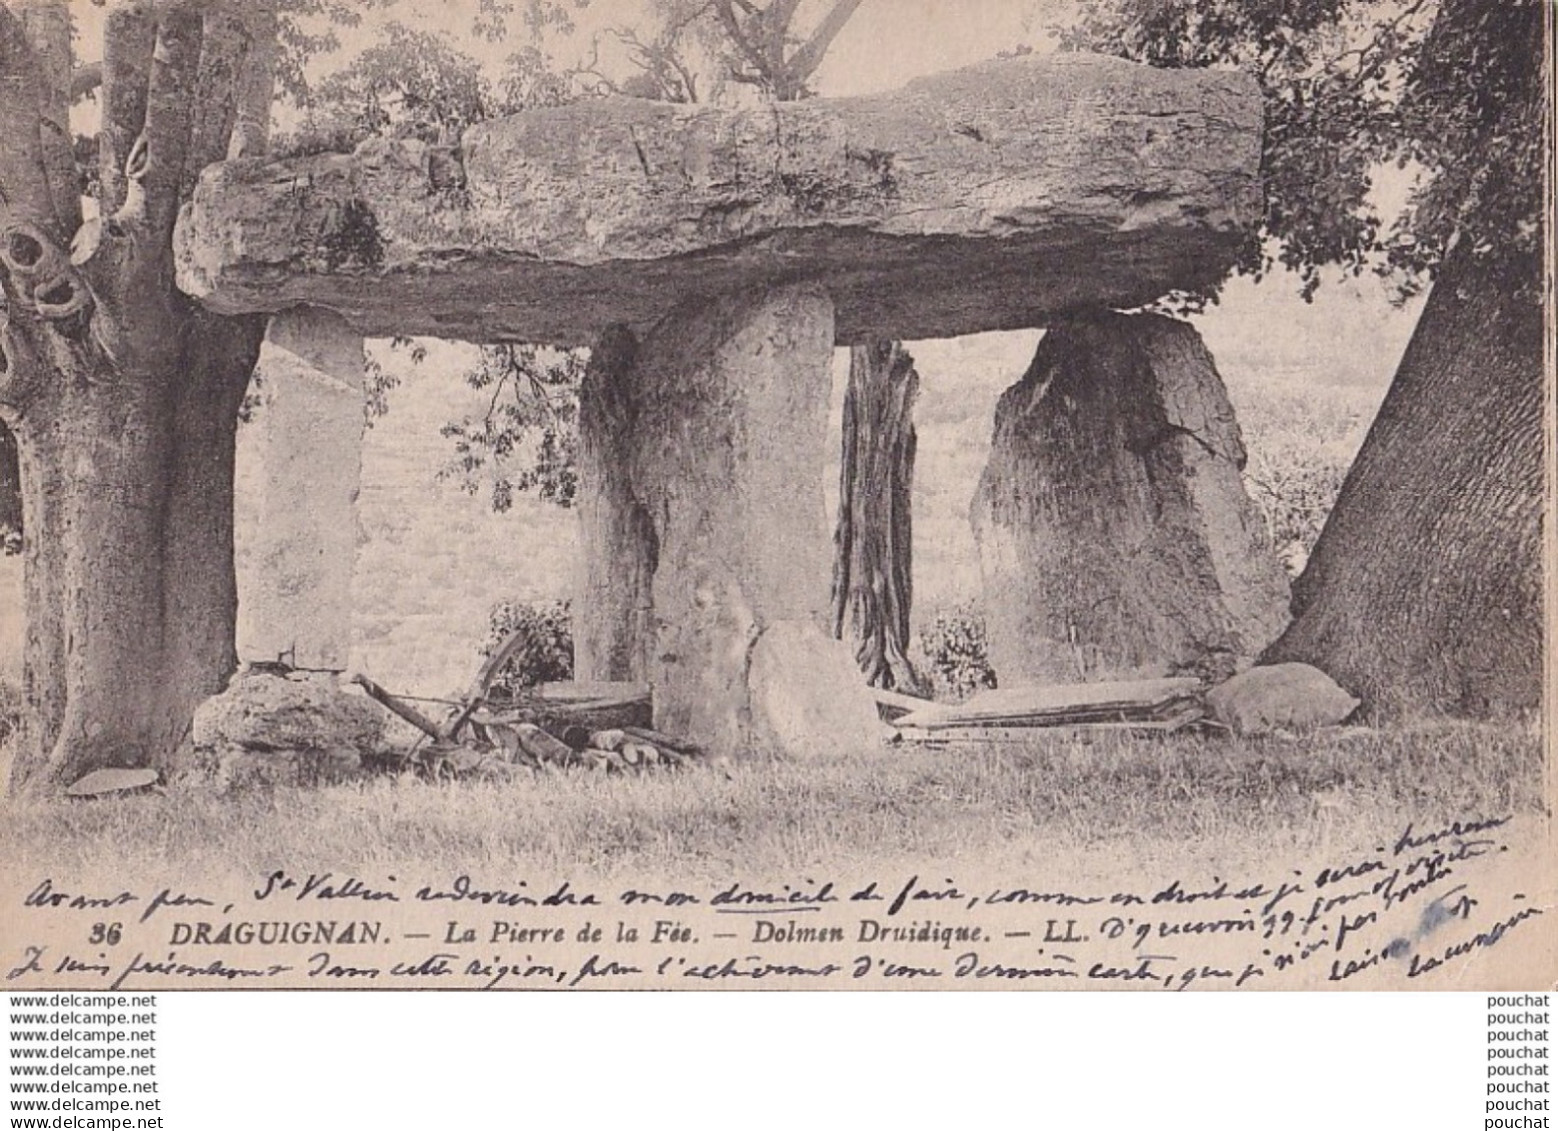 Avant peu, St Vallier redeviendra mon domicile de fait, comme en droit et je serai heureux
D'y recevoir qq. fois visite.
36 DRAGUIGNAN. — La Pierre de la Fée. — Dolmen Druidique. — LL.
Je suis présentement dans cette région, pour l'achèvement d'une dernière carte, que je n'ai pas
www.delcampe.net
www.delcampe.net
www.delcampe.net
www.delcampe.net
www.delcampe.net
www.delcampe.net
www.delcampe.net
www.delcampe.net
pouchat
pouchat
pouchat
pouchat
pouchat
pouchat
pouchat
pouchat